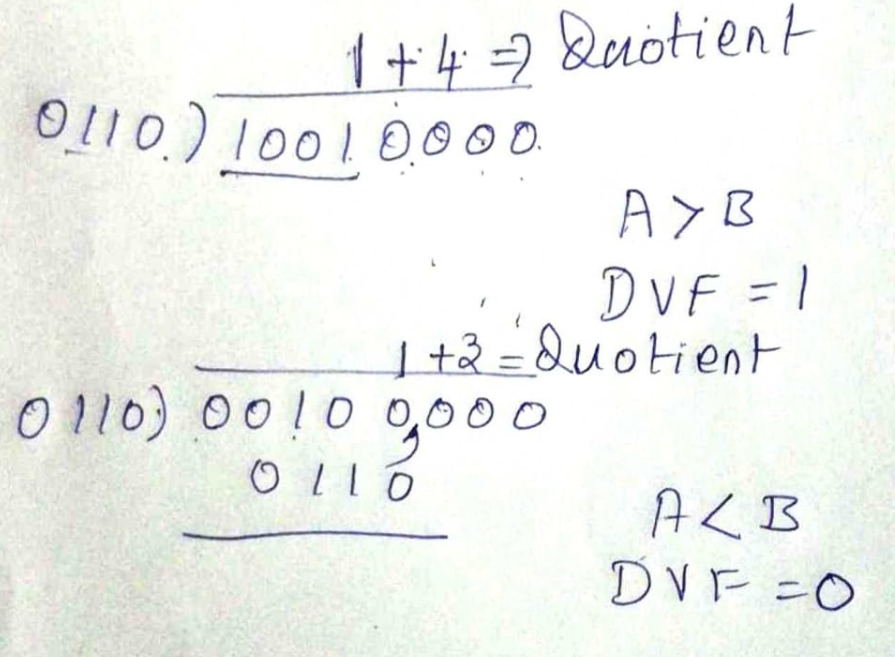 1 + 4 => Quotient
0110.) 1001 0000.
A > B
DVF = 1
1 + 3 = Quotient
0110) 0010 0,000
0110
A < B
DVF = 0